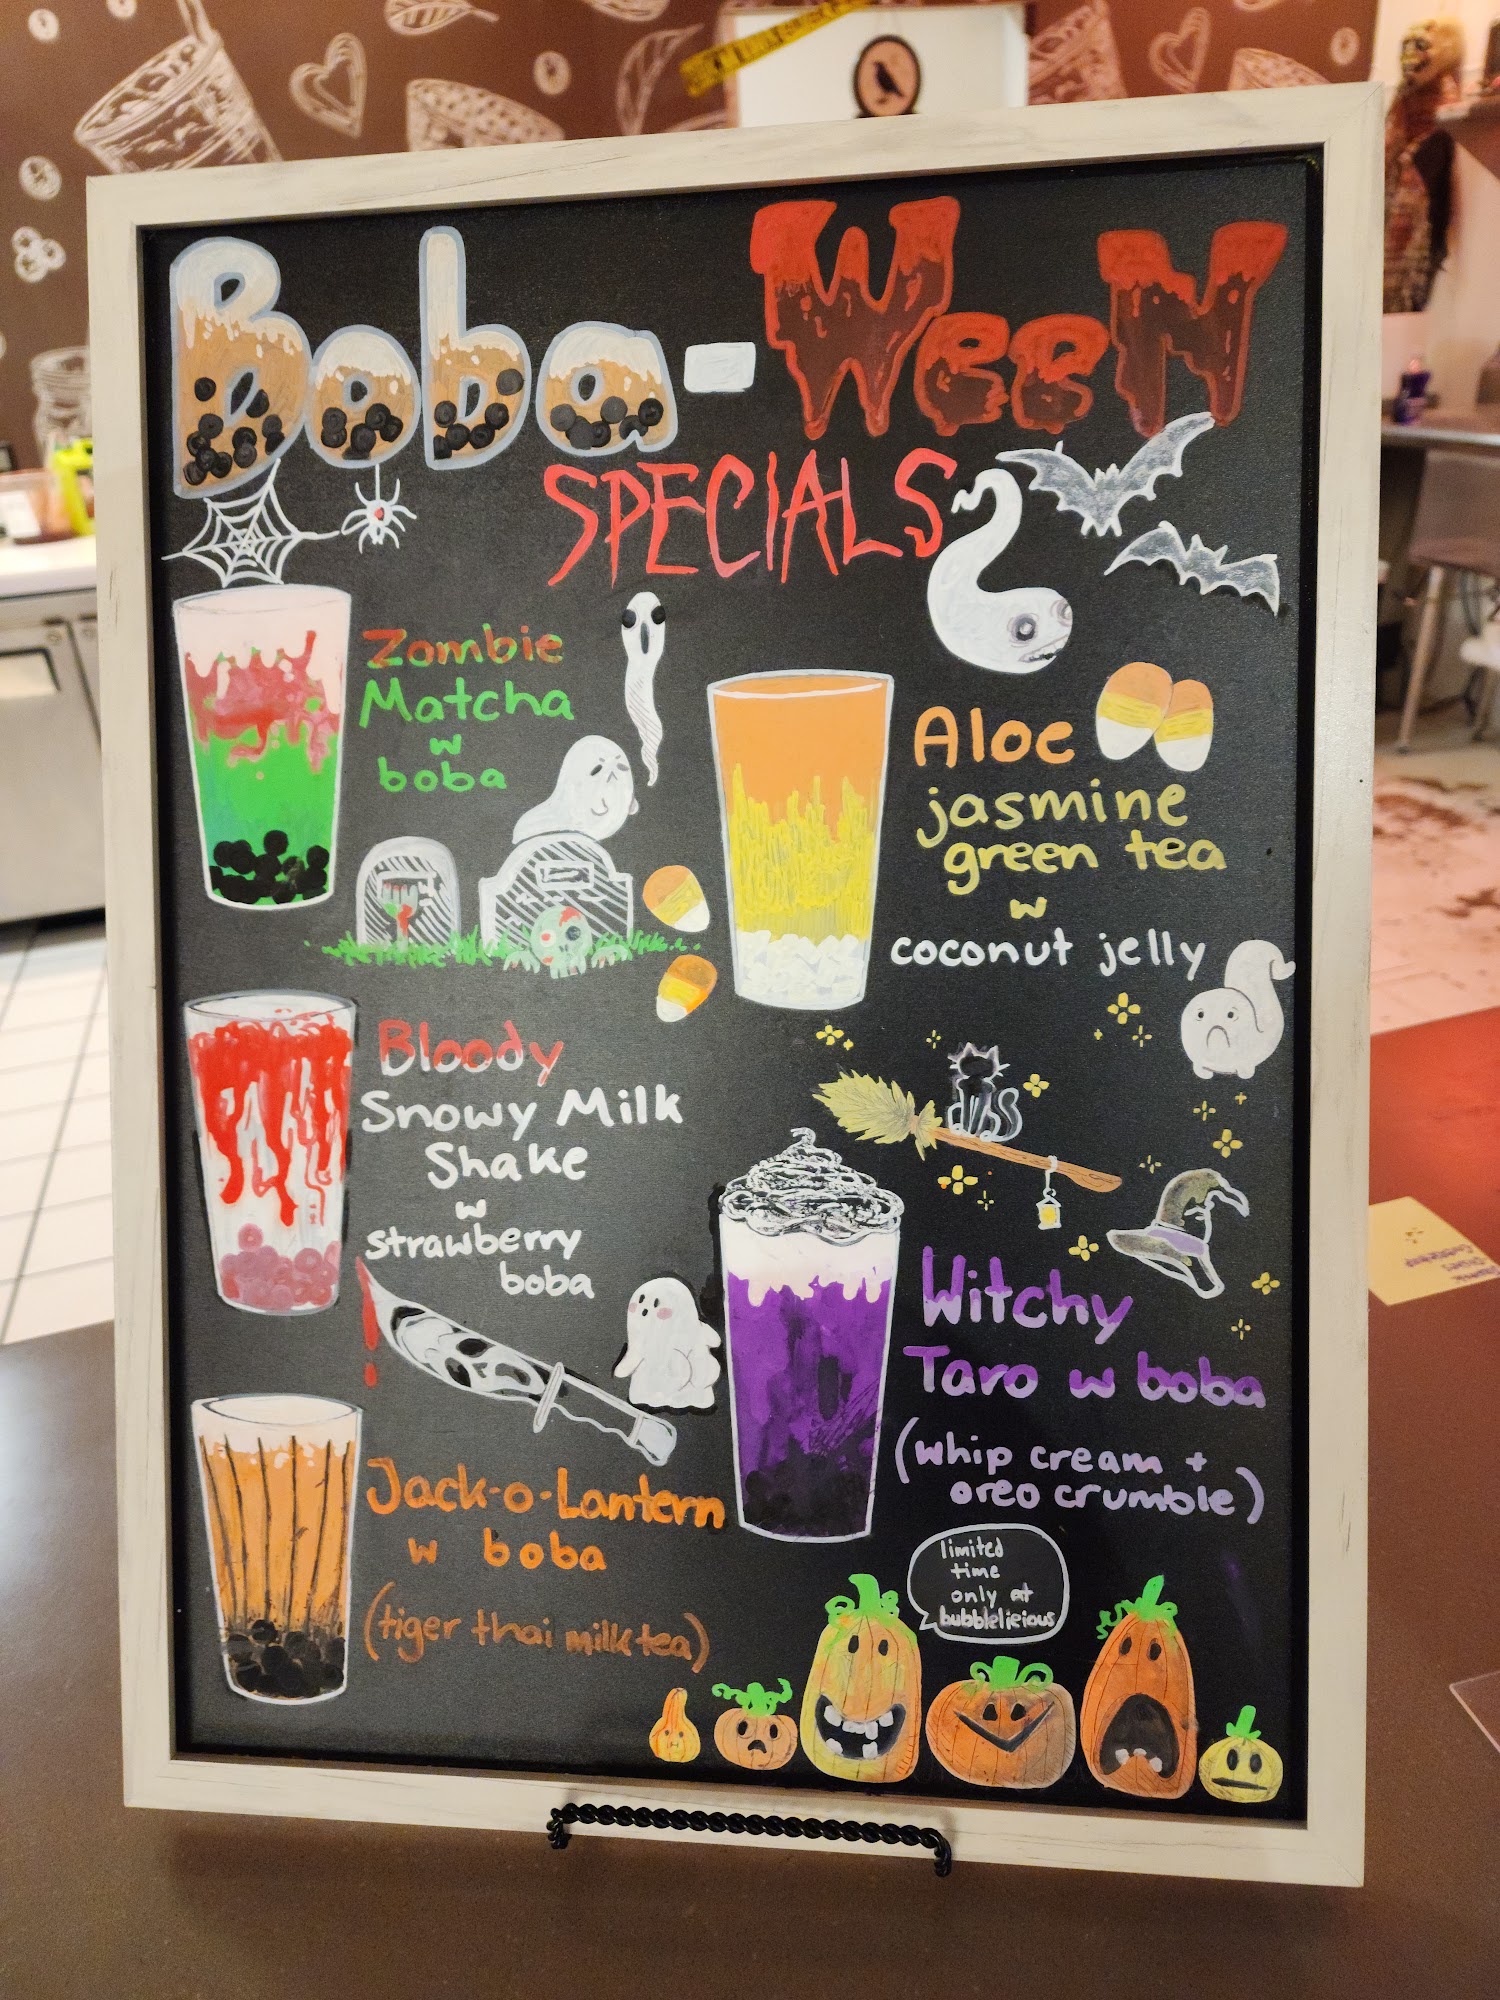 Boba-WeeN
SPECIALS
Zombie
Matcha
w
boba
Aloe
jasmine
green tea
w
coconut jelly
Bloody
Snowy Milk
Shake
w
strawberry
boba
Witchy
Taro w boba
(whip cream +
oreo crumble)
Jack-o-Lantern
w boba
(tiger thai milk tea)
limited
time
only at